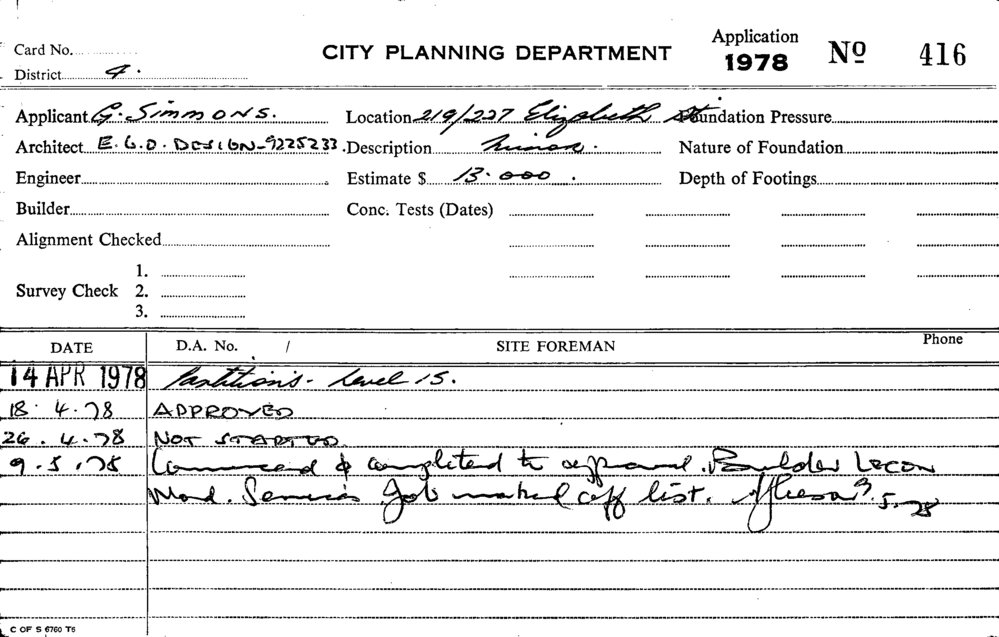 Card No. Application
CITY PLANNING DEPARTMENT 1978 Nº 416
District 4.
Applicant G. Simmons. Location 219/227 Elizabeth St Foundation Pressure
Architect E.G.O. DESIGN-9225233. Description Minor. Nature of Foundation
Engineer Estimate $ 13.000. Depth of Footings
Builder Conc. Tests (Dates)
Alignment Checked
1.
Survey Check 2.
3.
DATE D.A. No. / SITE FOREMAN Phone
14 APR 1978 Partitions - Level 15.
18.4.78 APPROVED
26.4.78 NOT STARTED
9.5.78 Commenced & completed to approval. Builder
Services Job marked off list. 9.5.78
C OF S 6760 T6